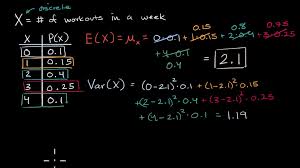 discrete
X = # of workouts in a week
X P(X)
0 0.1
1 0.15
2 0.4
3 0.25
4 0.1
E(X) = μx = 0·0.1 + 1·0.15 + 2·0.4 + 3·0.25
0.15 0.8 0.75
+ 4·0.1
0.4
= 2.1
Var(X) = (0-2.1)²·0.1 + (1-2.1)²·0.15
+ (2-2.1)²·0.4 + (3-2.1)²·0.25
+ (4-2.1)²·0.1 = 1.19